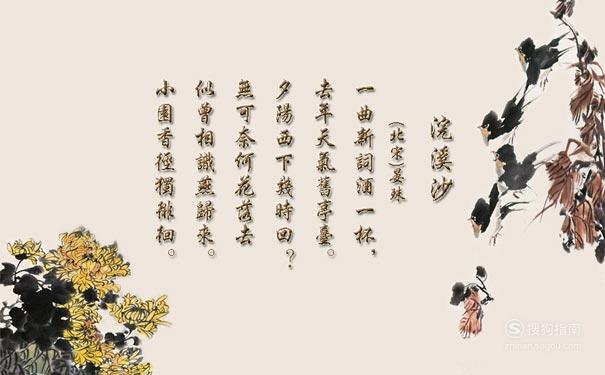 浣溪沙
(北宋)晏殊
一曲新詞酒一杯,
去年天氣舊亭臺。
夕陽西下幾時回?
無可奈何花落去
仙曾相識燕歸來。
小園香徑獨徘徊。
搜狗指南
zhinan.sogou.com